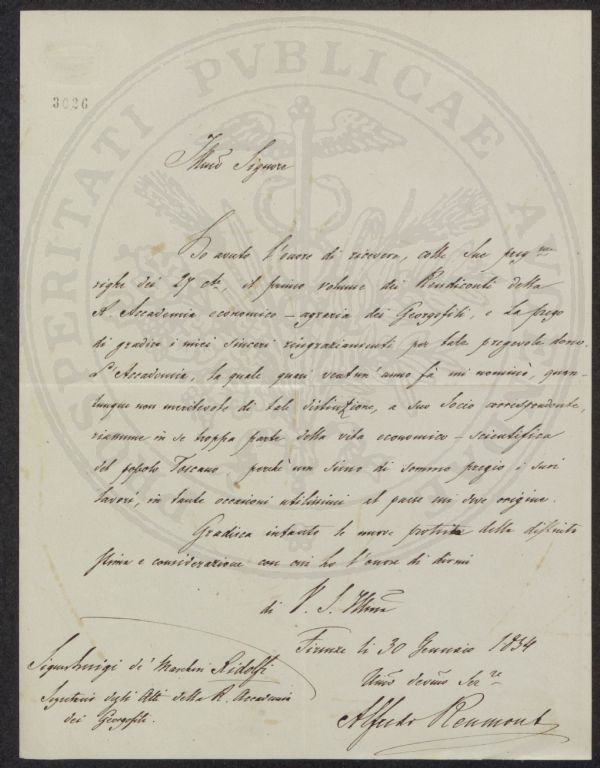 3026
PROSPERITATI PVBLICAE AVGENDAE
Illmo Signore
Ho avuto l'onore di ricevere, colle Sue preg.me
righe dei 27 cte, il primo volume dei Rendiconti della
R. Accademia economico-agraria dei Georgofili, e La prego
di gradire i miei sinceri ringraziamenti per tale pregevole dono.
L'Accademia, la quale quasi vent'un'anno fà mi nominò, quan-
tunque non meritevole di tale distinzione, a suo Socio corrispondente,
riassume in se troppa parte della vita economico-scientifica
del popolo Toscano, perchè non siano di sommo pregio i suoi
lavori, in tante occasioni utilissimi al paese cui deve origine.
Gradisca intanto le nuove proteste della distinta
stima e considerazione con cui ho l'onore di dirmi
di V. S. Illma
Firenze li 30 Gennaio 1854
Umo devmo Se.re
Alfredo Reumont
Signor Luigi de' Marchesi Ridolfi
Segretario degli Atti della R. Accademia
dei Georgofili.